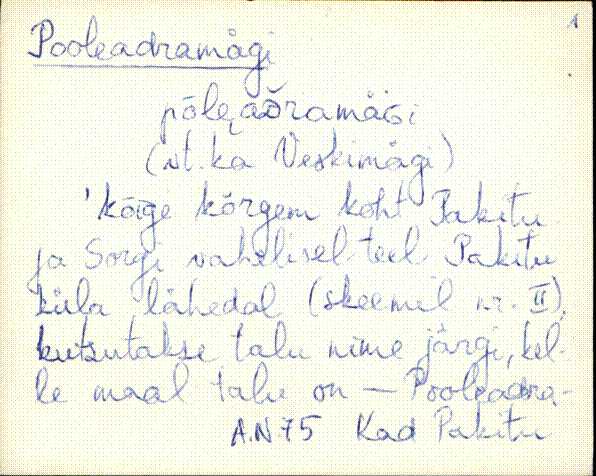 1
Pooleadramägi
pōleaδramäGi
(vt. ka Veskimägi)
'kõige kõrgem koht Pakitu
ja Sorgi vahelisel teel Pakitu
küla lähedal (skeemil nr. II),
kutsutakse talu nime järgi, kel-
le maal talu on — Pooleadra-
A.N 75 Kad Pakitu